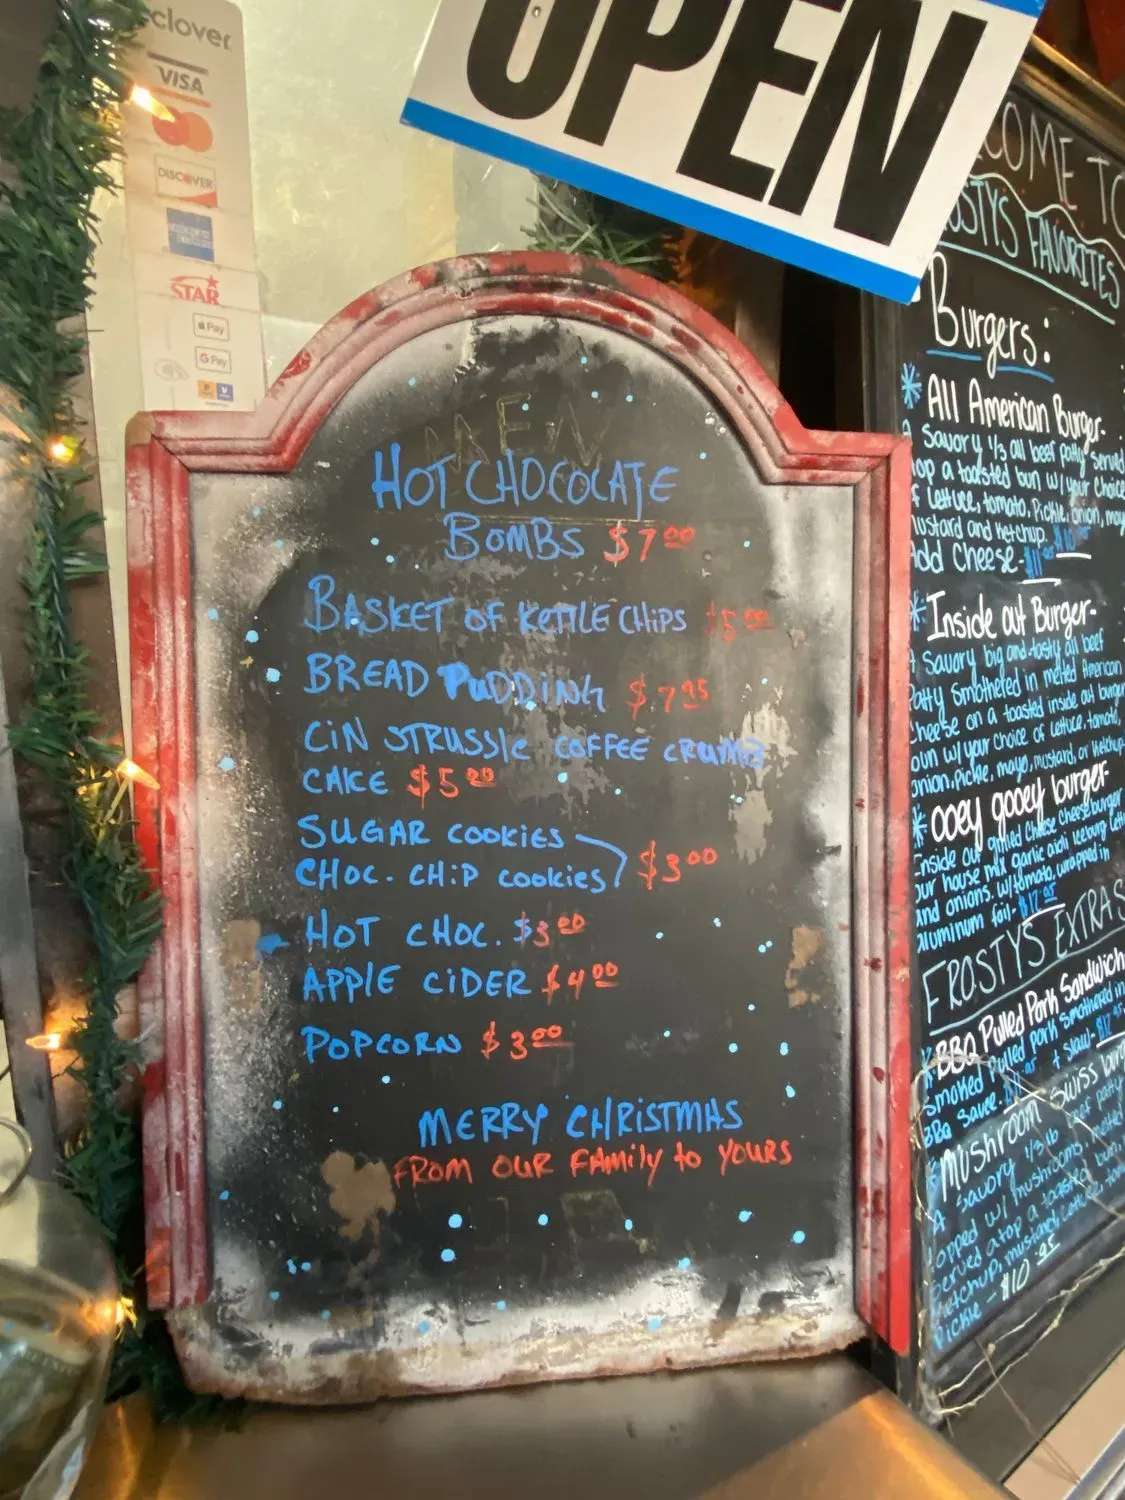 clover
VISA
DISCOVER
AMERICAN EXPRESS
STAR
Pay
G Pay
OPEN
MENU
HOT CHOCOLATE
BOMBS $7.00
BASKET OF KETTLE CHIPS $5.00
BREAD PUDDING $7.95
CIN STRUSSLE COFFEE CRUMB
CAKE $5.00
SUGAR COOKIES
CHOC. CHIP COOKIES $3.00
HOT CHOC. $3.00
APPLE CIDER $4.00
POPCORN $3.00
MERRY CHRISTMAS
FROM OUR FAMILY to YOURS
COME TO
OSTYS FAVORITES
Burgers:
All American Burger-
A Savory 1/3 all beef patty served
top a toasted bun w/ your Choice
of Lettuce, tomato, Pickle, onion, mayo
mustard and Ketchup.
Add Cheese-
Inside out Burger-
A Savory big and tasty all beef
Patty Smothered in melted American
Cheese on a toasted inside out burger
bun w/ your choice of Lettuce, tomato,
onion, pickle, mayo, mustard, or Ketchup-
ooey gooey burger-
Inside out grilled Cheese Cheeseburger
our house mix garlic aioli iceburg lettu
and onions, w/ tomato, wrapped in
aluminum foil- $17.95
FROSTYS EXTRAS
BBQ Pulled Pork Sandwich
Smoked Pulled pork Smothered in
BBQ Sauce. + slaw- $12.95
Mushroom Swiss burg
A Savory 1/3 lb beef patty
topped w/ mushrooms, melted
Served atop a toasted bun w
Ketchup, mustard, Lettuce, tom
Pickle - $10.95